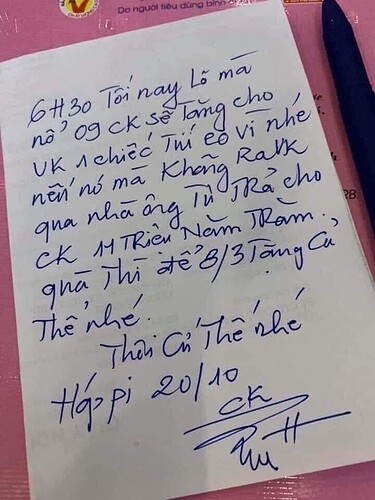 Do người tiêu dùng bình
6H30 Tối nay Lỡ mà
nổ 09 CK sẽ Tặng cho
VK 1 chiếc Túi eo vi nhé
nếu nó mà Không Ra VK
qua nhà ông Tú TRả cho
CK 11 TRiệu Năm TRăm.
quà Thì để 8/3 Tặng Cả
Thể nhé.
Thôi Cứ Thế nhé
Hápi 20/10
CK